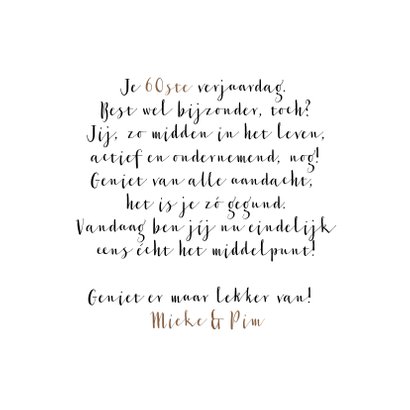 Je 60ste verjaardag.
Best wel bijzonder, toch?
Jij, zo midden in het leven,
actief en ondernemend, nog!
Geniet van alle aandacht,
het is je zó gegund.
Vandaag ben jíj nu eindelijk
eens écht het middelpunt!
Geniet er maar lekker van!
Mieke & Pim